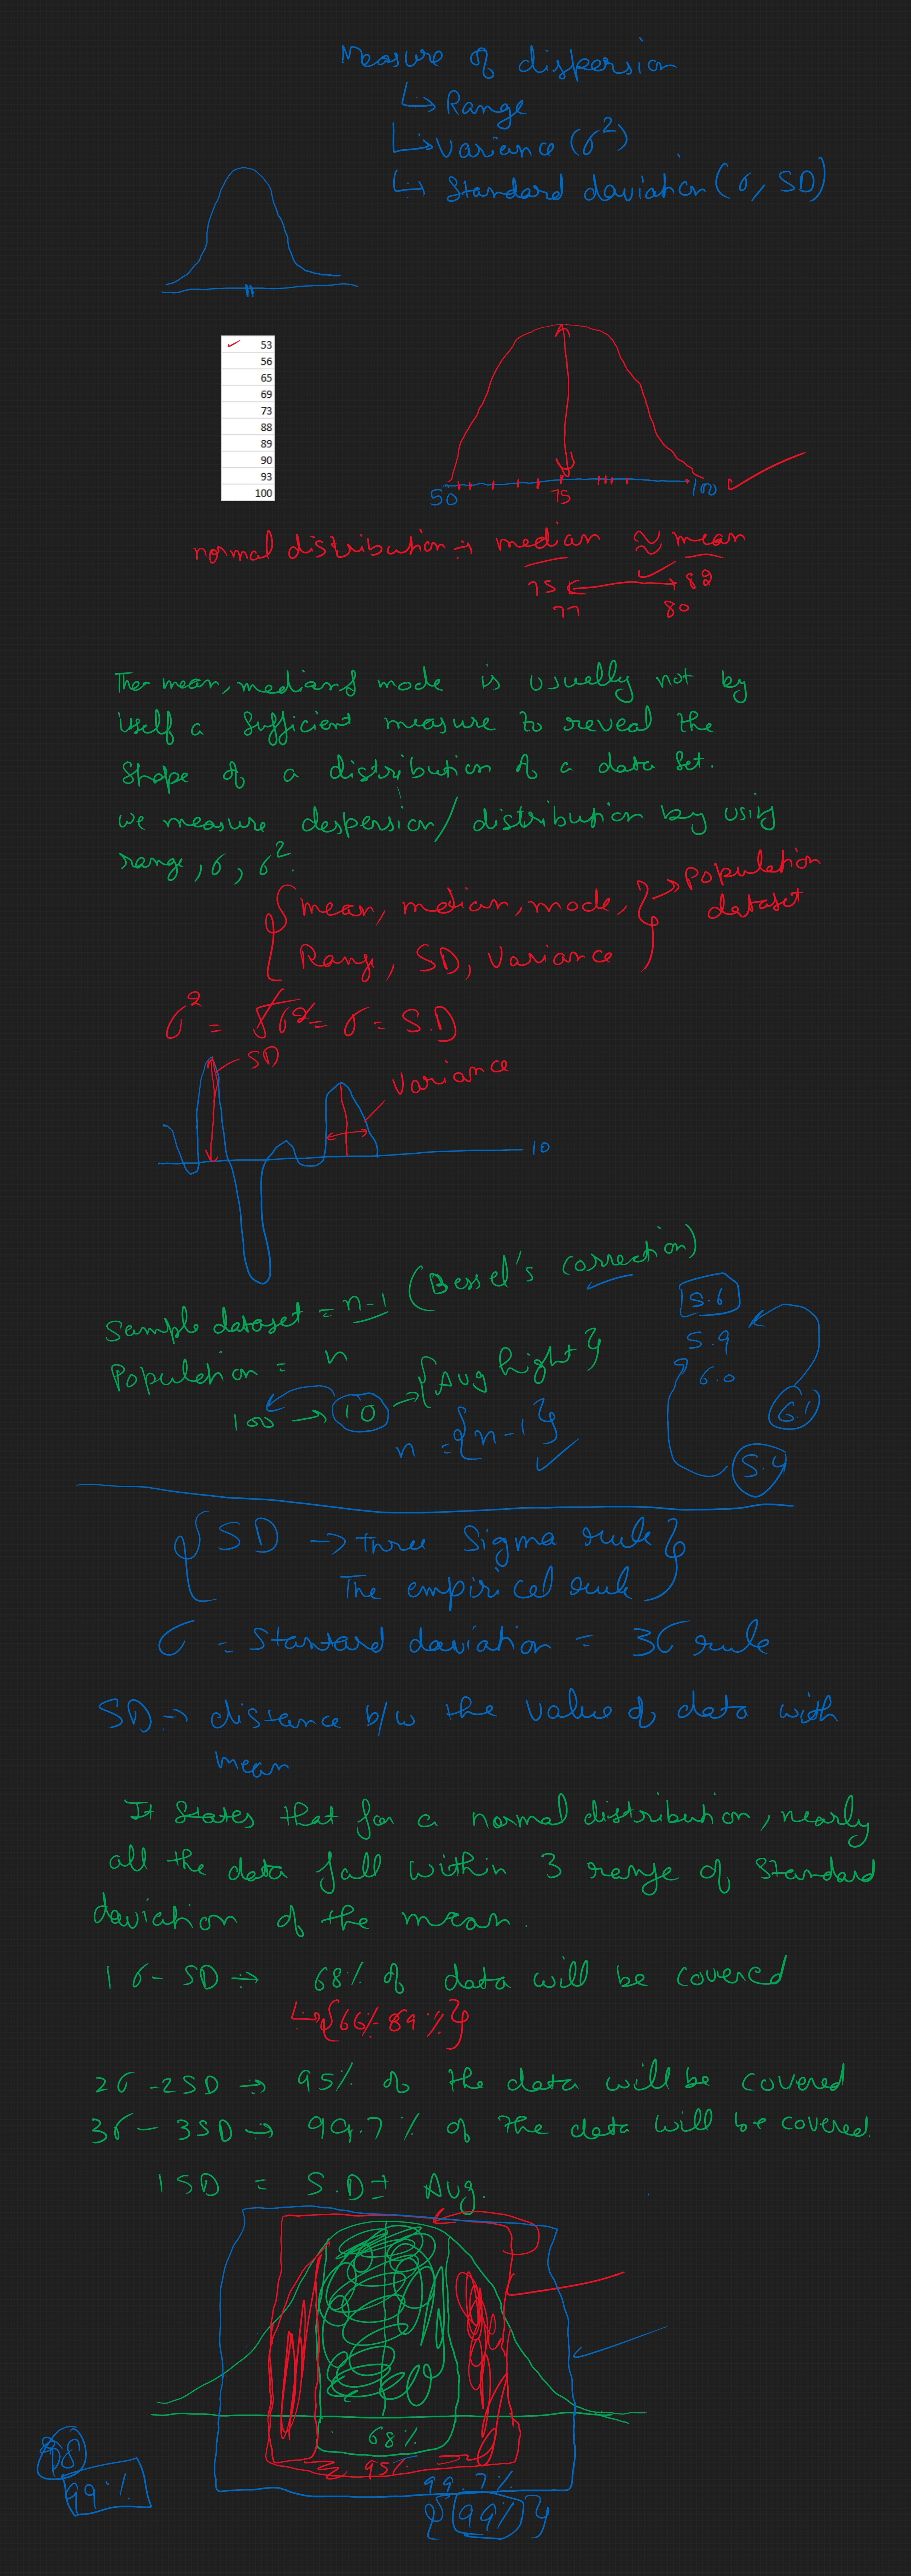 Measure of dispersion
↳ Range
↳ Variance (σ²)
↳ Standard daviation (σ, SD)
53
56
65
69
73
88
89
90
93
100
50 75 100
normal distribution → median ≈ mean
75 ↔ 82
77 80
The mean, median & mode is usually not by
itself a sufficient measure to reveal the
shape of a distribution of a data set.
we measure despersion / distribution by using
range, σ, σ².
{ mean, median, mode, } → Population
Range, SD, Variance dataset
σ² = √σ² = σ = S.D
SD
Variance
10
Sample dataset = n-1 (Bessel's correction)
Population = n
100 → 10 → {Avg hight}
n = {n-1}
5.6
5.9
6.0
6.1
5.4
{ SD → three Sigma rule
The empirical rule }
σ = Stantard daviation = 3σ rule
SD → distance b/w the value of data with
mean
It states that for a normal distribution, nearly
all the data fall within 3 range of standard
daviation of the mean.
1σ - SD → 68% of data will be covered
↳ {66%- 69%}
2σ - 2SD → 95% of the data will be covered
3σ - 3SD → 99.7% of the data will be covered.
1SD = S.D ± Avg.
68%
95%
99.7%
99%
{99%}